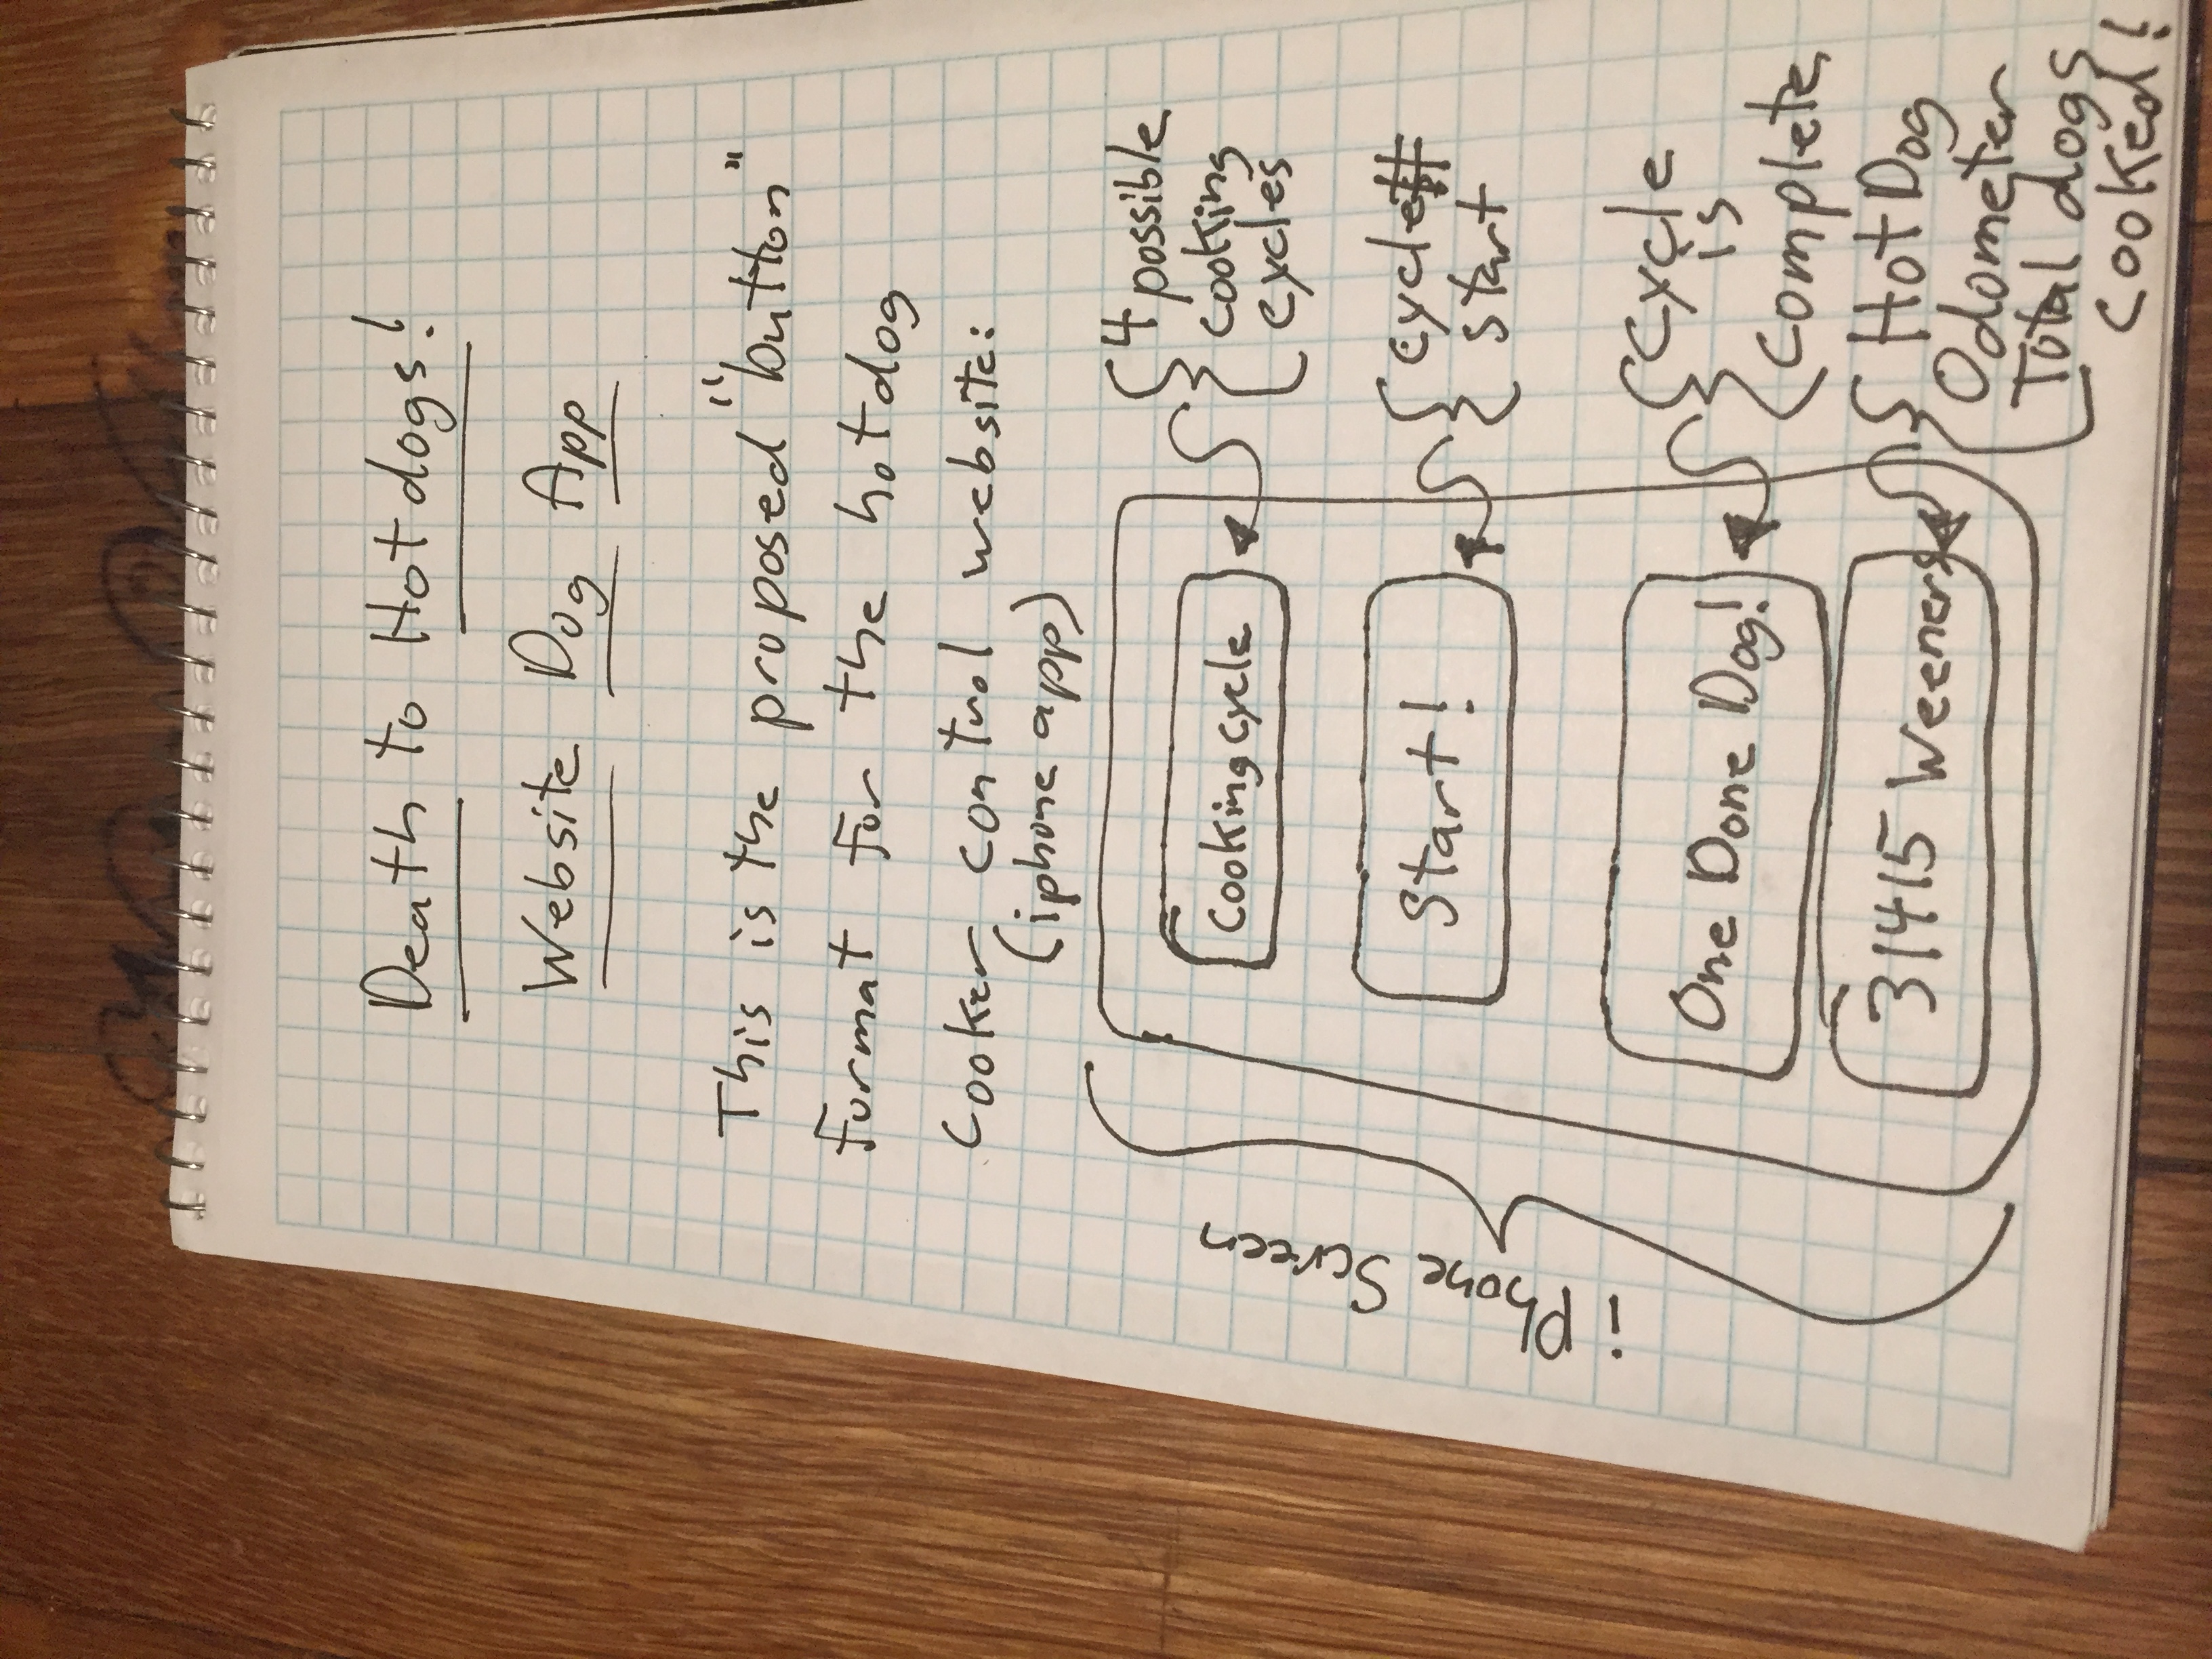 Death to Hotdogs!
Website Dog App
This is the proposed "button"
format for the hotdog
cooker control website:
(iphone app)
iPhone Screen
Cooking cycle
4 possible
cooking
cycles
Start!
cycle#
start
One Done Dog!
Cycle
is
complete
31415 Weeners
HotDog
Odometer
Total dogs
cooked!